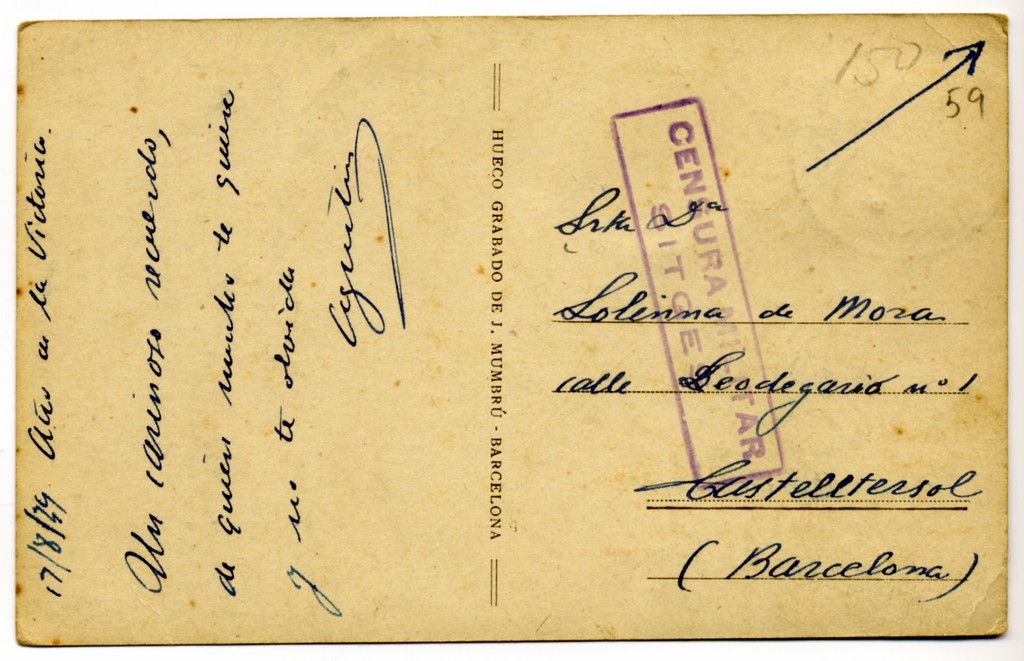 17/8/39 Año de la Victoria.
Un cariñoso recuerdo,
de quien mucho te quiere
y no te olvida
Agustin
HUECO GRABADO DE J. MUMBRÚ - BARCELONA
CENSURA MILITAR
SITGES
150
59
Srta Dª
Solerina de Mora
calle Leodegario nº 1
Castelltersol
(Barcelona)